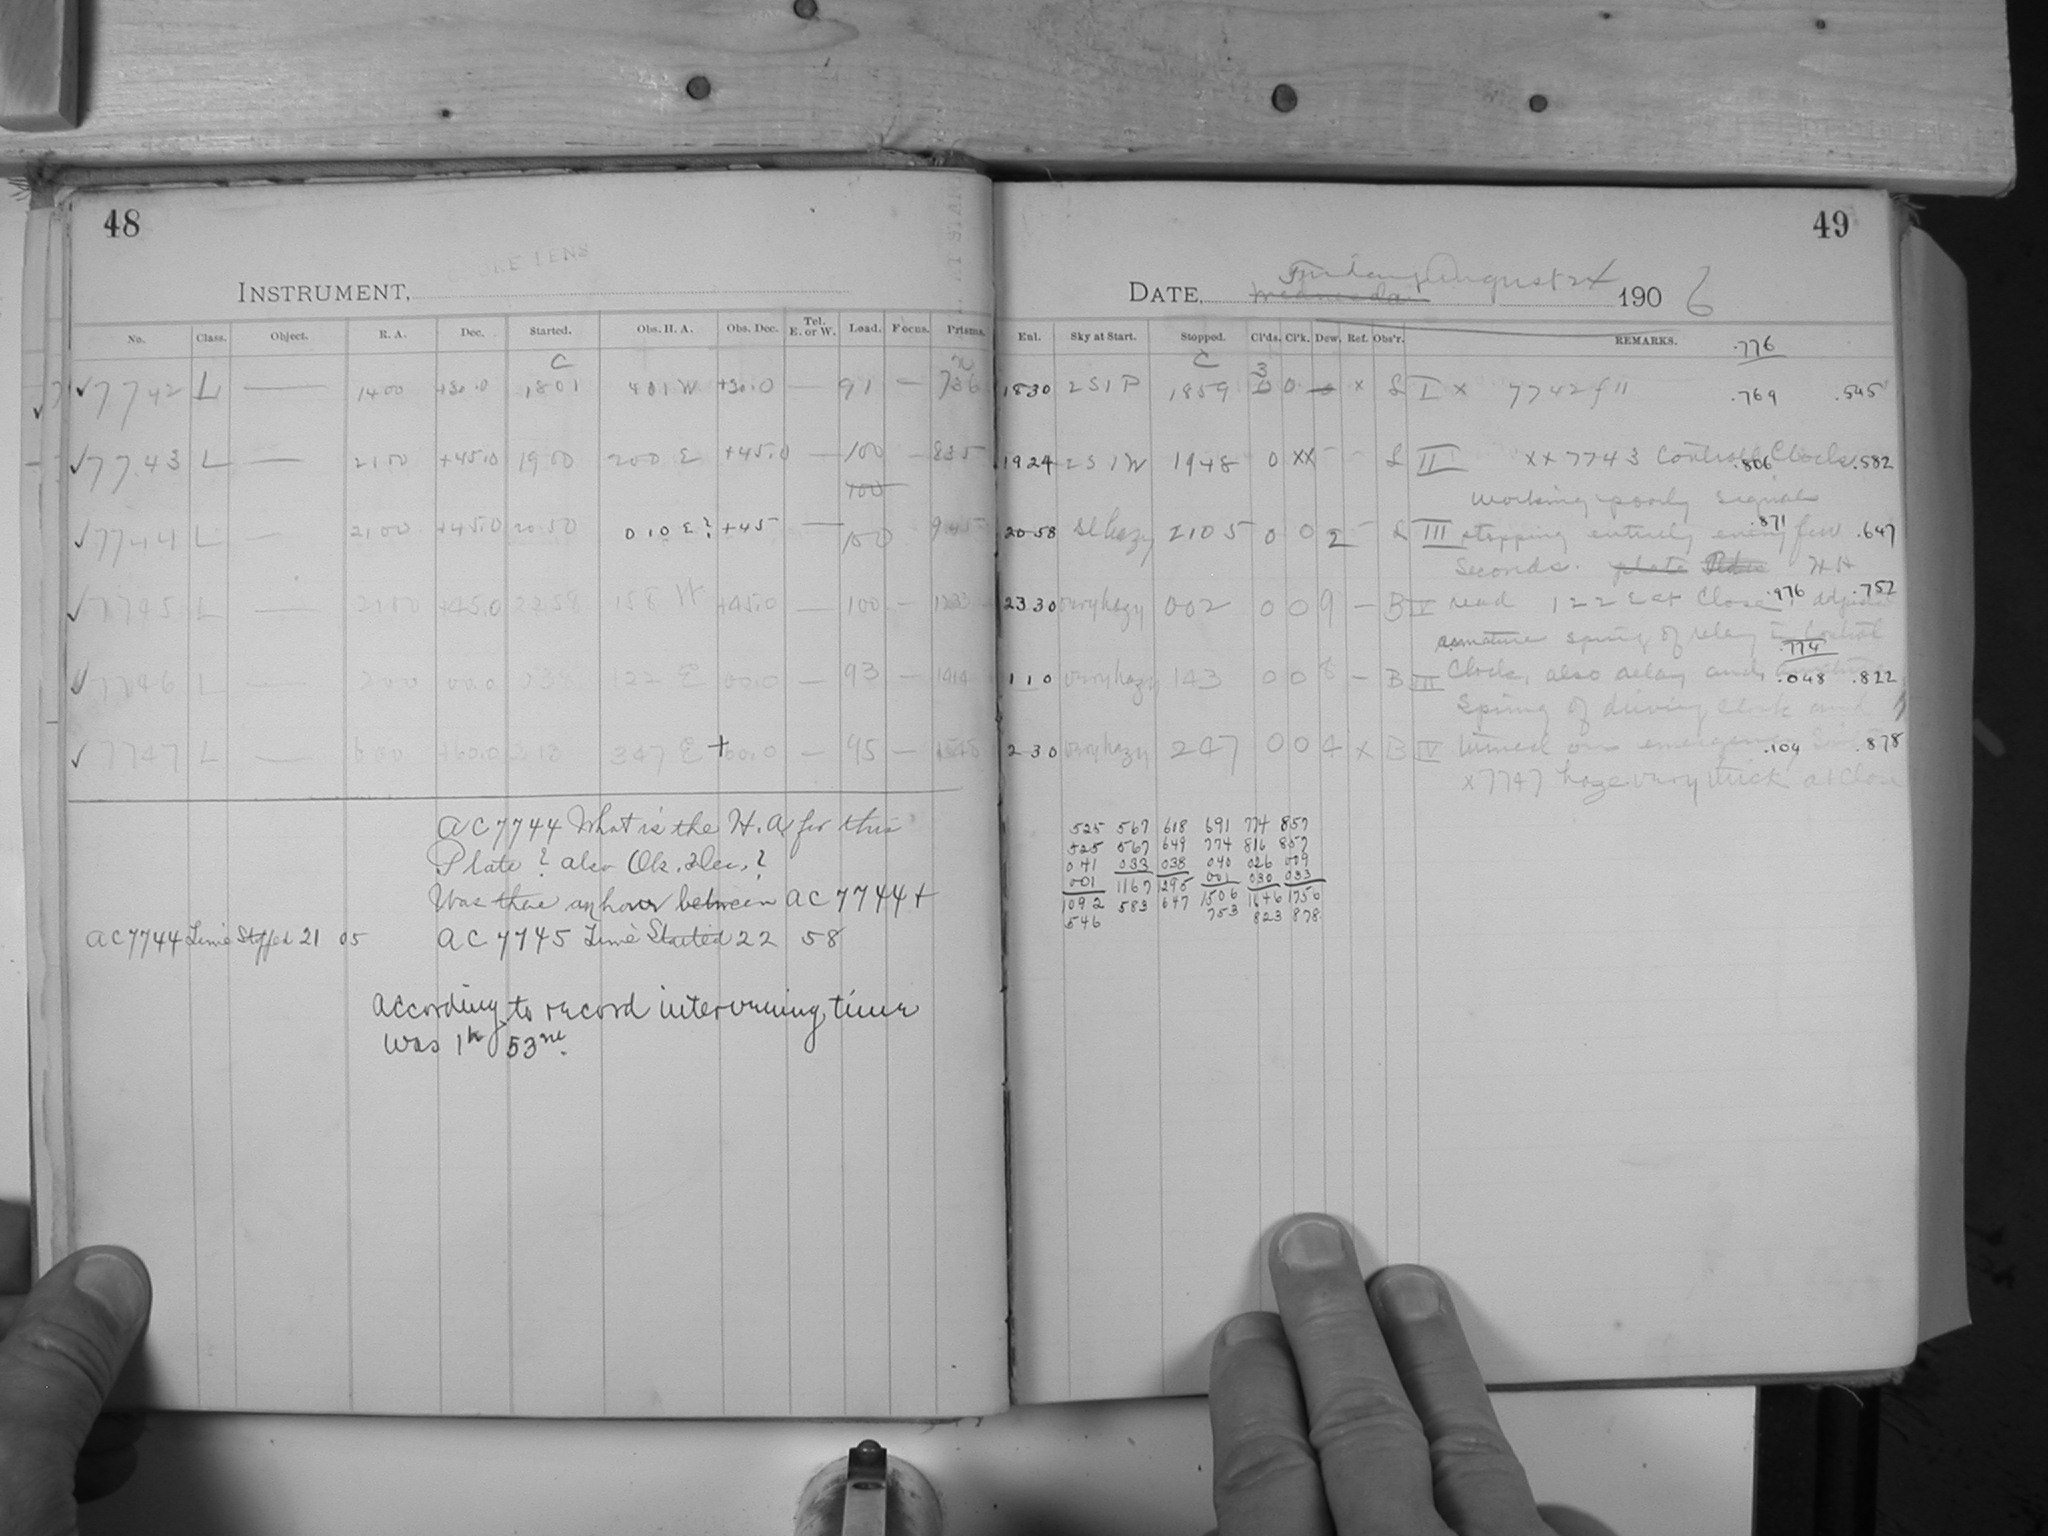 48
COOKE LENS
INSTRUMENT,
No. Class. Object. R. A. Dec. Started. Obs. H. A. Obs. Dec. Tel. E. or W. Load. Focus. Prisms.
C
✓7742 L — 1400 +30.0 1801 401 W +30.0 — 91 — 736
✓7743 L — 2100 +45.0 1900 200 E +45.0 — 100 — 835
100
✓7744 L — 2100 +45.0 2050 010 E? +45 — 100 945
✓7745 L — 2100 +45.0 2258 158 W +45.0 — 100 — 1233
✓7746 L — 200 00.0 038 122 E 00.0 — 93 — 1414
✓7747 L — 600 +60.0 213 347 E +60.0 — 95 — 1548
AC 7744 What is the H. A. for this
Plate? also Ob. Dec.?
Was there an hour between AC 7744 +
AC 7744 Time Stopped 21 05 AC 7745 Time Started 22 58
According to record intervening time
was 1h 53m.
49
Friday August 24
DATE, Wednesday 190 6
Enl. Sky at Start. Stopped. Cl'ds. Cl'k. Dew. Ref. Obs'r. REMARKS. .776
C 3
1830 2S1P 1859 0 0 0 x L I x 7742 f 11 .769 .545
1924 2S1W 1948 0 xx - - L II xx 7743 Control Clock .806 .582
working poorly signals
2058 sl hazy 2105 0 0 2 - L III stopping entirely every few .871 .647
Seconds. plate H A
23.30 very hazy 002 0 0 9 - B IV read 122 E at Close, .976 .752
armature spring of relay in Control .774
110 very hazy 143 0 0 8 - B III Clock, also relay and .048 .822
Spring of driving clock and
230 very hazy 247 0 0 4 x B IV turned on emergency .104 .878
x 7747 haze very thick at close
525 567 618 691 774 857
525 567 649 774 816 857
041 033 038 040 026 009
001 1167 1295 001 030 033
1092 583 647 1506 1646 1756
546 753 823 878